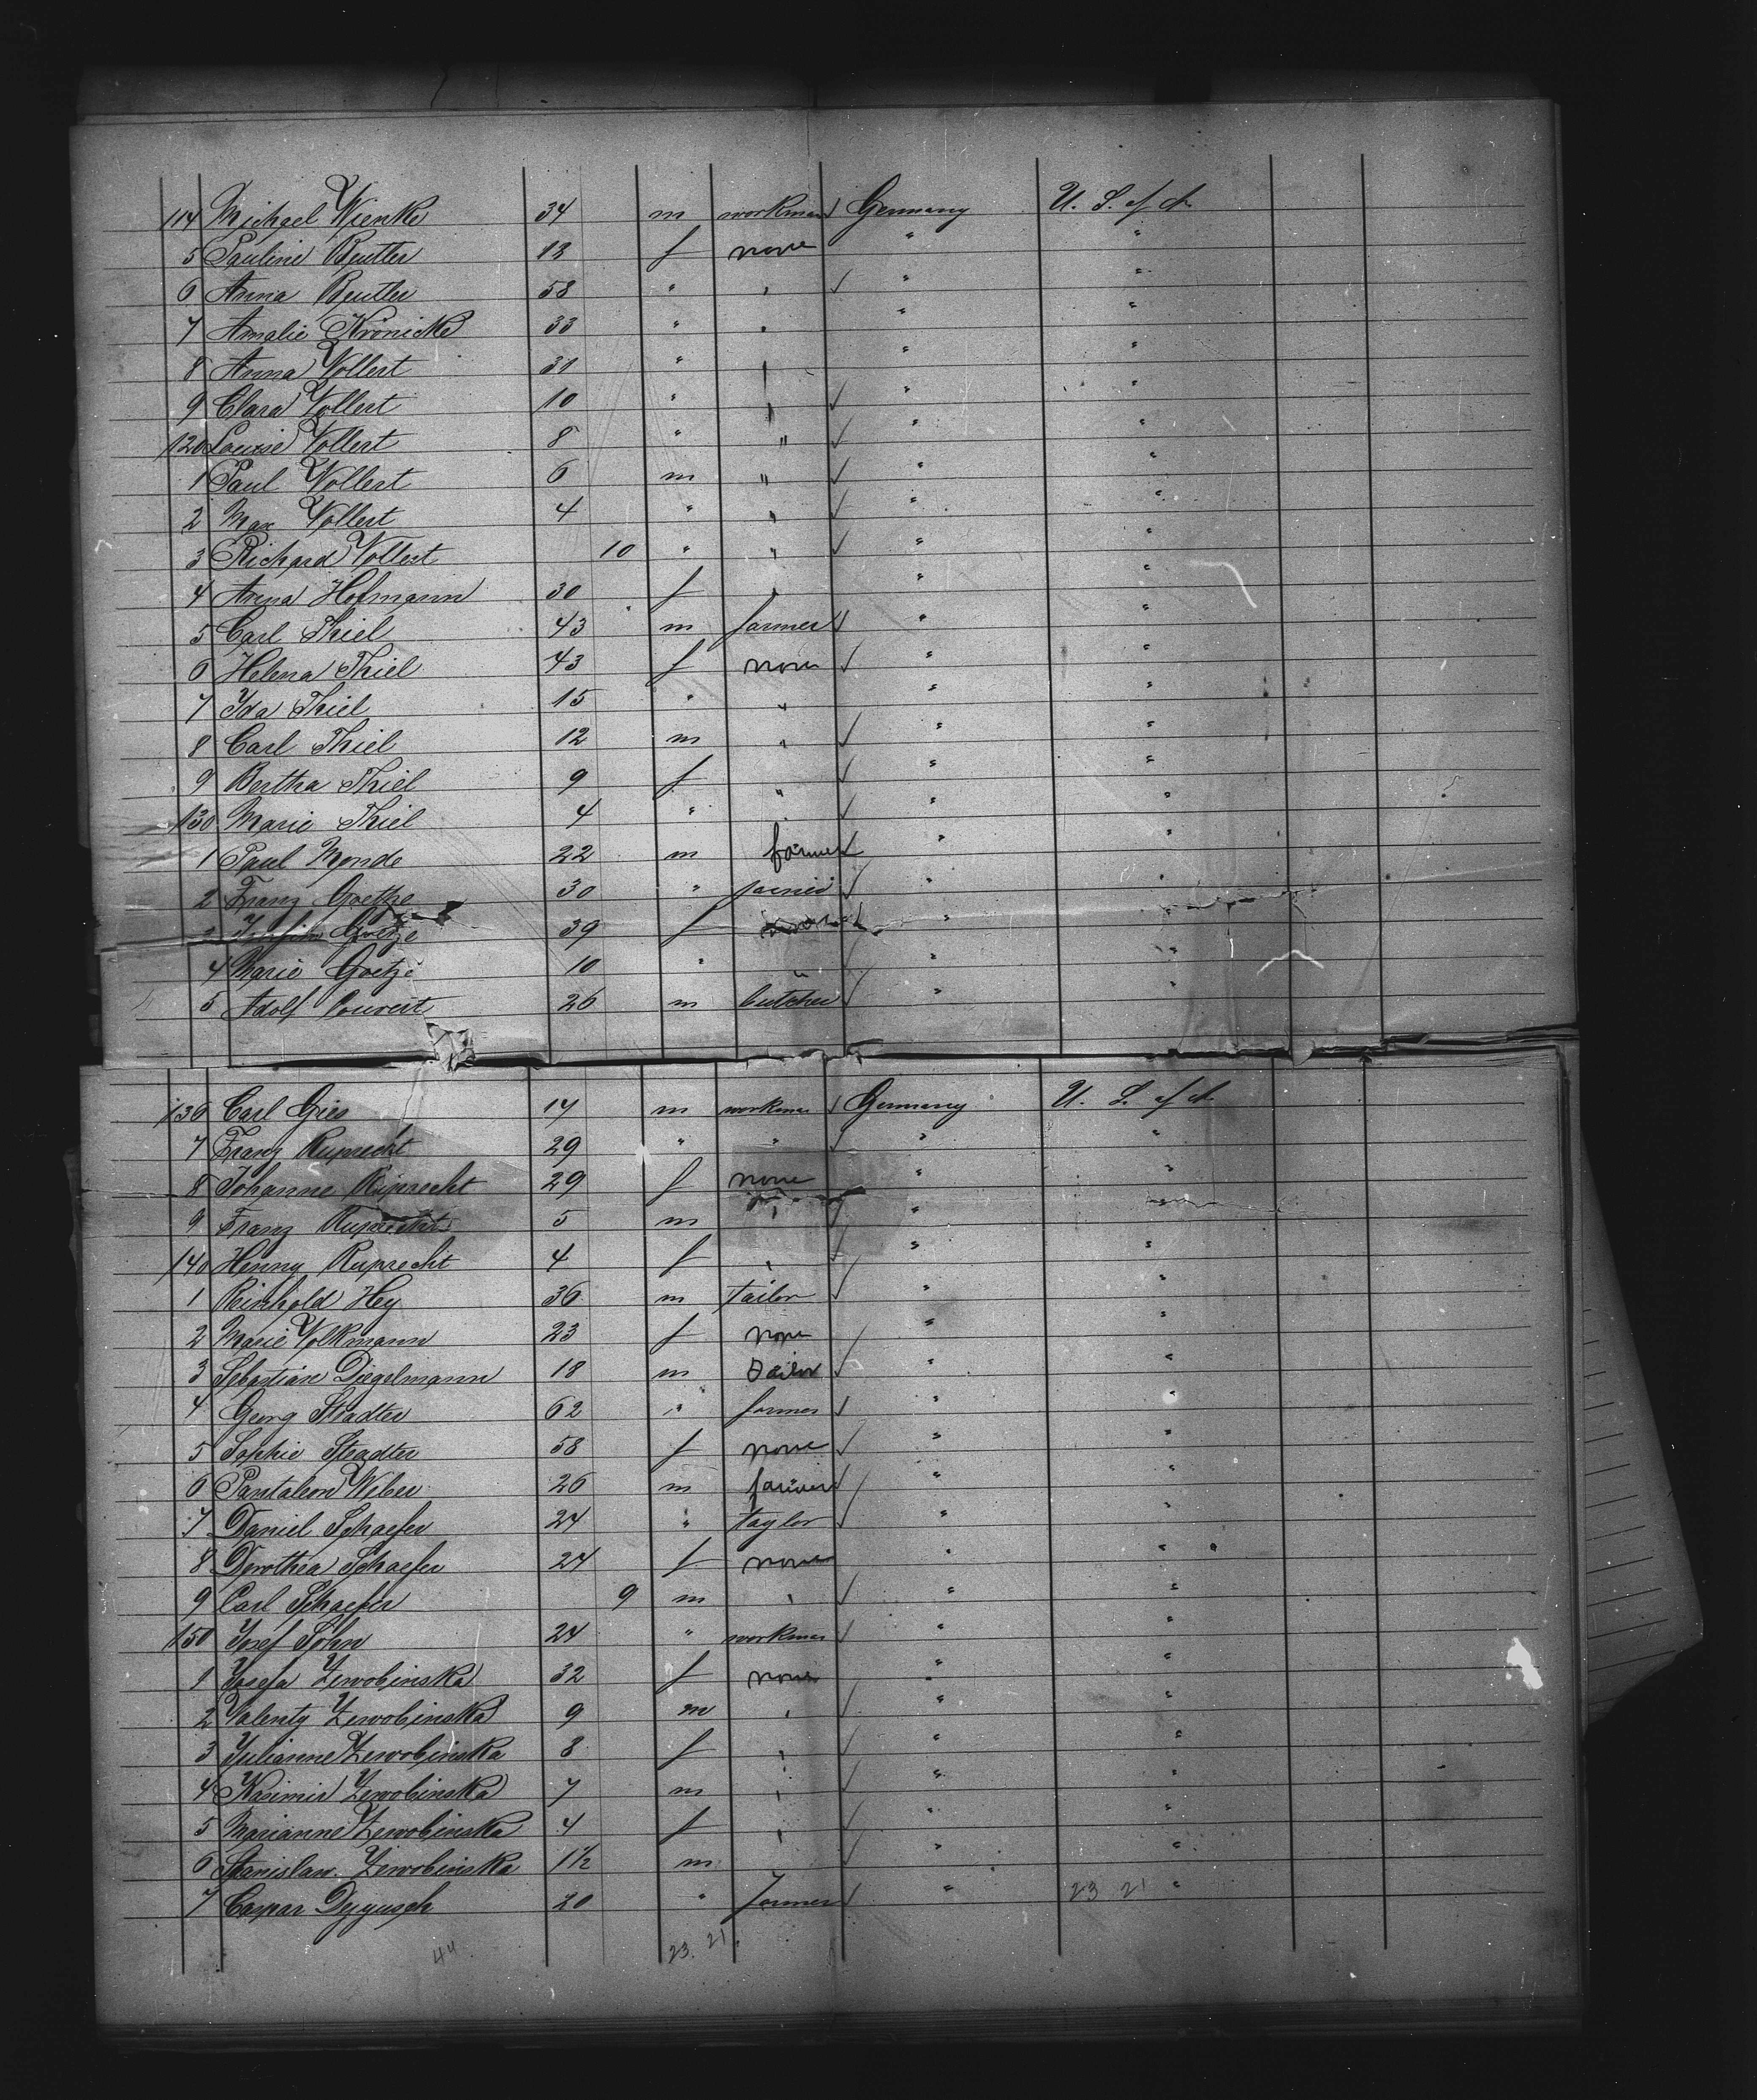 114 Michael Wienke 34 m workman Germany U. S. of A.
5 Pauline Beutler 13 f none " "
6 Anna Beutler 58 " " " "
7 Amalie Kronicke 33 " " " "
8 Anna Vollert 31 " " " "
9 Clara Vollert 10 " " " "
120 Louise Vollert 8 " " " "
1 Paul Vollert 6 m " " "
2 Max Vollert 4 " " " "
3 Richard Vollert 10 " " " "
4 Anna Hofmann 30 f " " "
5 Carl Thiel 43 m farmer " "
6 Helena Thiel 43 f none " "
7 Ida Thiel 15 " " " "
8 Carl Thiel 12 m " " "
9 Bertha Thiel 9 f " " "
130 Marie Thiel 4 " " " "
1 Paul Monde 22 m farmer " "
2 Franz Goetze 30 " " "
3 Goetze 39 f " "
4 Marie Goetze 10 " " " "
5 Adolf 26 m butcher " "
136 Carl Gies 17 m workman Germany U. S. of A.
7 Franz Ruprecht 29 " " " "
8 Johanne Ruprecht 29 f none " "
9 Franz Ruprecht 5 m " " "
140 Henny Ruprecht 4 f " " "
1 Reinhold Hey 36 m tailor " "
2 Marie Volkmann 23 f none " "
3 Sebastian Diegelmann 18 m tailor " "
4 Georg Stradter 62 " farmer " "
5 Sophie Stradter 58 f none " "
6 Pantaleon Weber 26 m farmer " "
7 Daniel Schaefer 24 " taylor " "
8 Dorothea Schaefer 24 f none " "
9 Carl Schaefer 9 m " " "
150 Josef Sohn 24 " workman " "
1 Josefa Zewobinska 32 f none " "
2 Valenty Zewobinska 9 m " " "
3 Julianne Zewobinska 8 f " " "
4 Kasimir Zewobinska 7 m " " "
5 Marianne Zewobinska 4 f " " "
6 Stanislaw Zewobinska 1 1/2 m " "
7 Caspar Dygusch 20 " farmer " 23 21 "
44 23. 21.